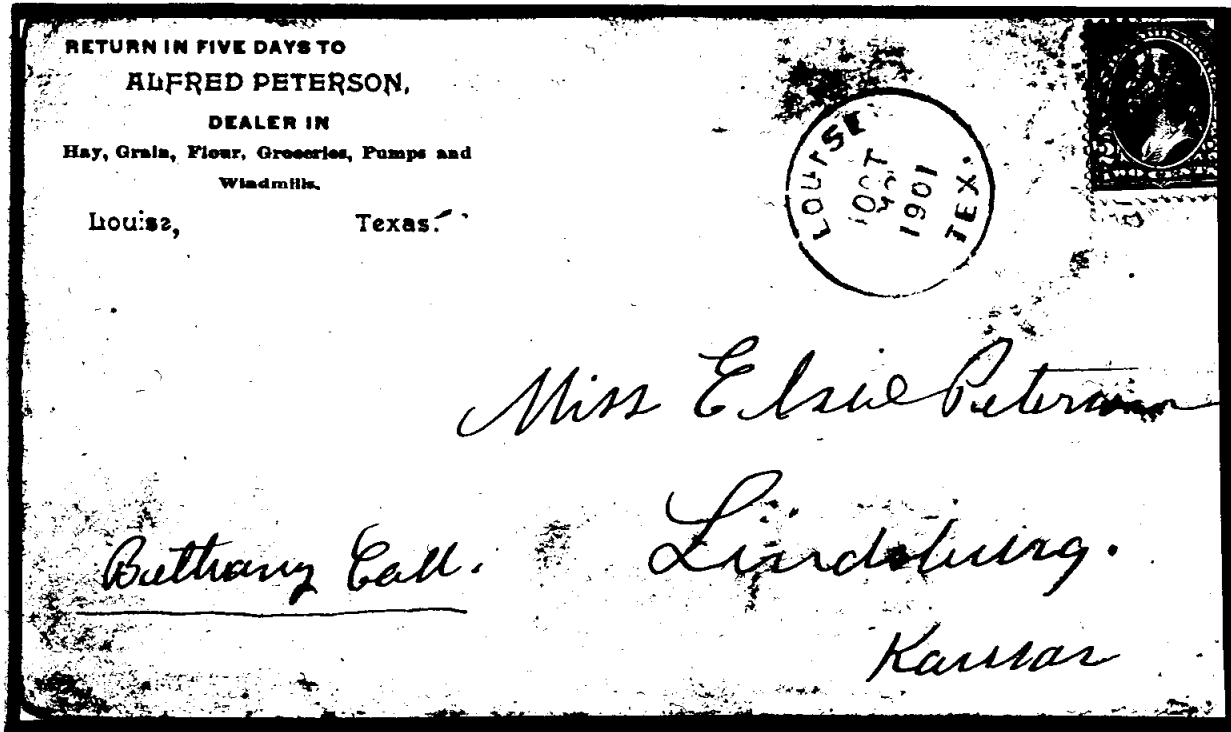 RETURN IN FIVE DAYS TO
ALFRED PETERSON,
DEALER IN
Hay, Grain, Flour, Groceries, Pumps and
Windmills.
Louise, Texas.
LOUISE
OCT
1901
TEX.
Miss Elsie Peterson
Lindsburg.
Bethany Coll.
Kansas